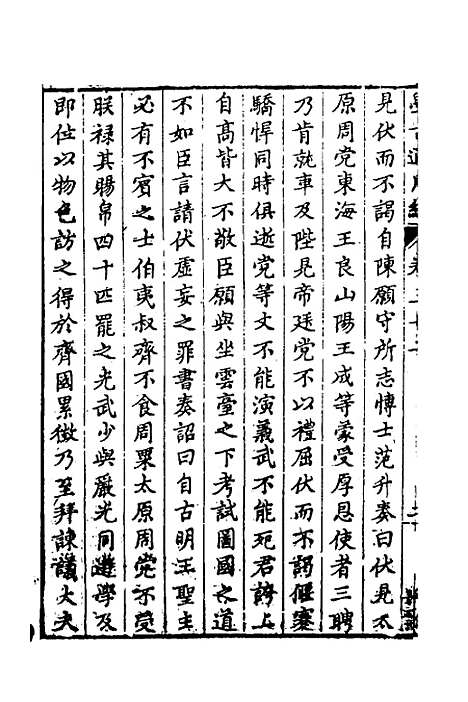 見伏而不謁自陳願守所志博士范升奏曰伏見太
原周党東海王良山陽王成等蒙受厚恩使者三聘
乃肯就車及陛見帝廷党不以禮屈伏而不謁偃蹇
驕悍同時俱逝党等文不能演義武不能死君誇上
自高皆大不敬臣願與坐雲臺之下考試圖國之道
不如臣言請伏虛妄之罪書奏詔曰自古明王聖主
必有不賓之士伯夷叔齊不食周粟太原周党不受
朕祿其賜帛四十匹罷之光武少與嚴光同遊學及
即位以物色訪之得於齊國累徵乃至拜諫議大夫